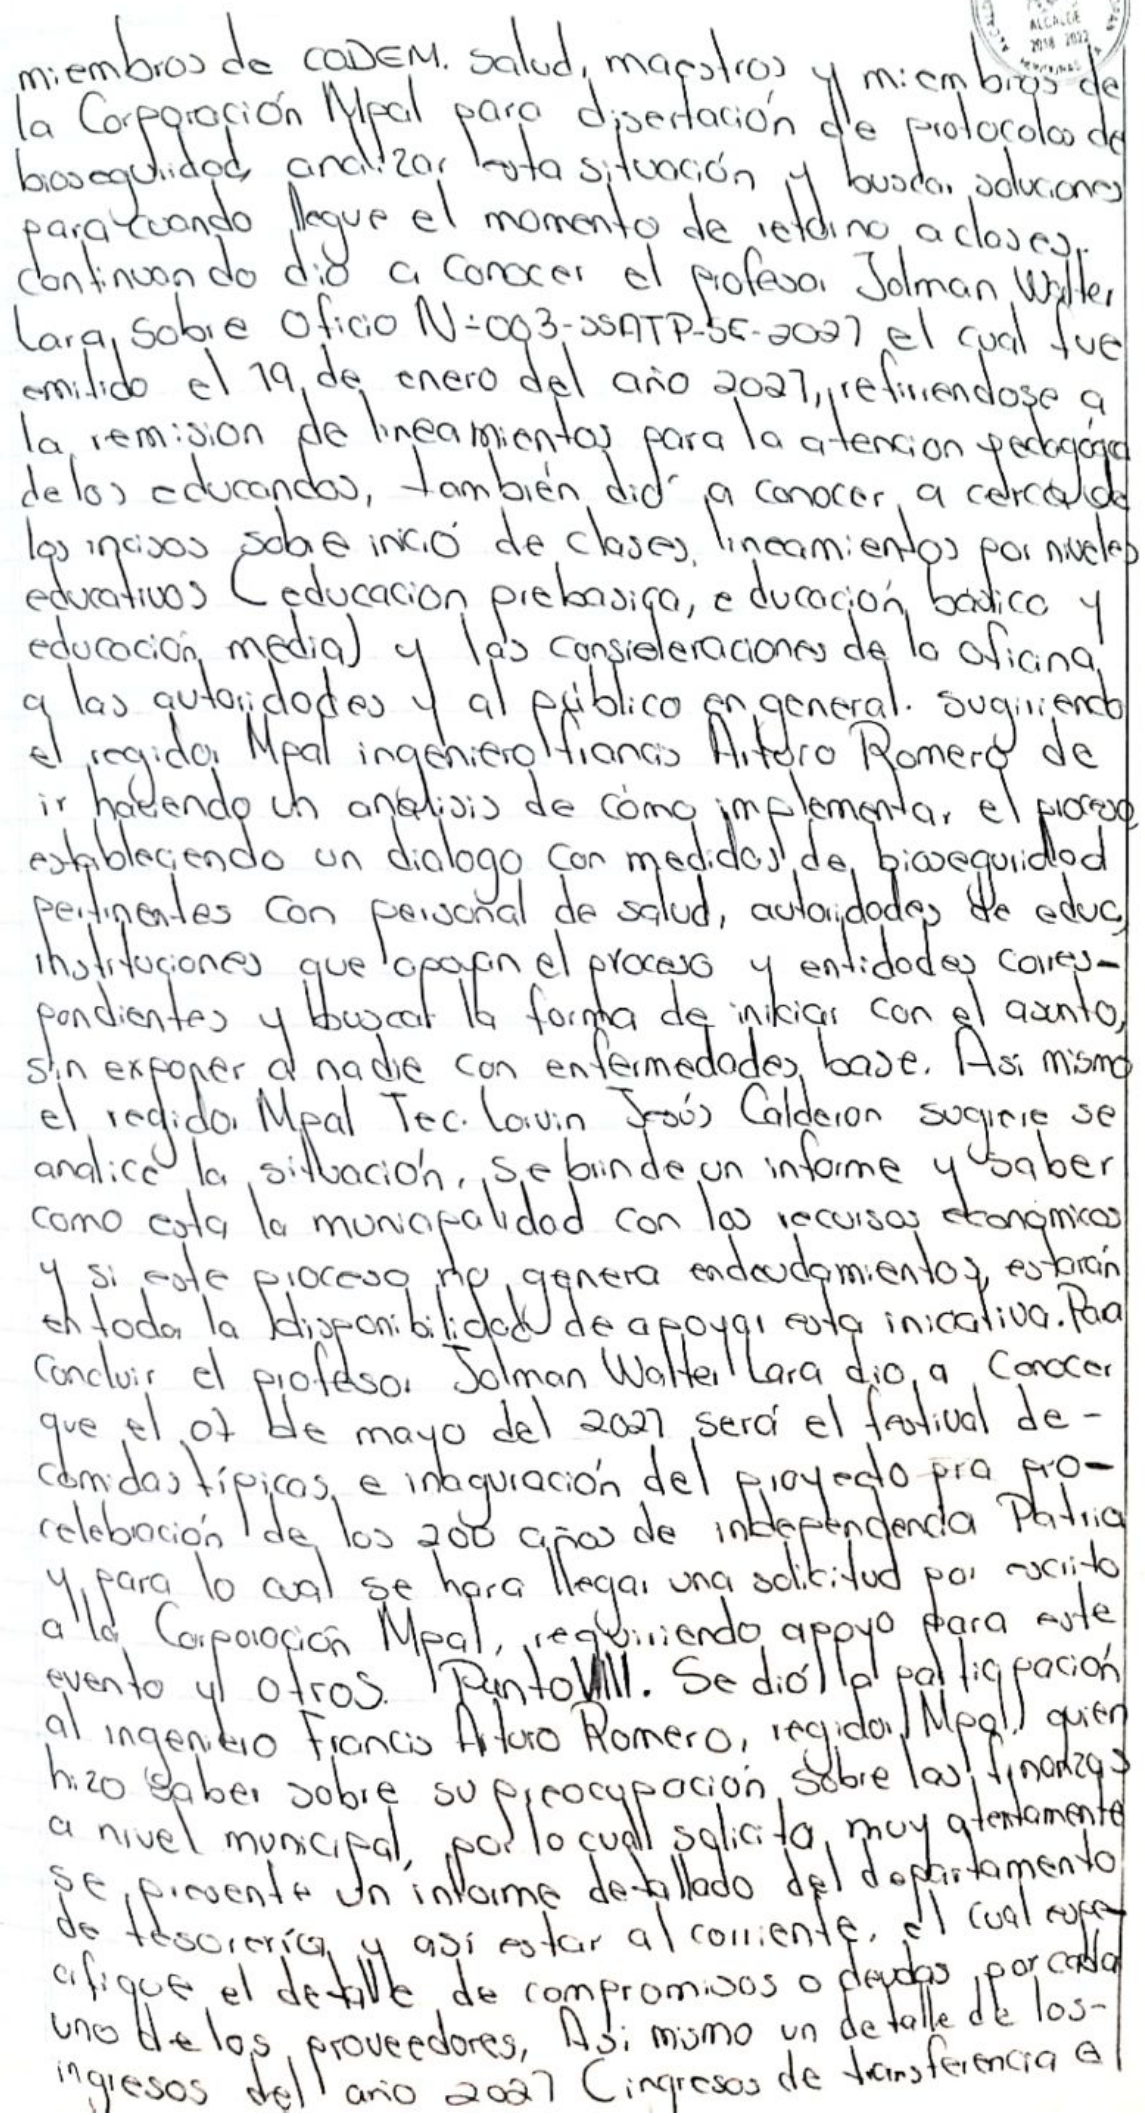 ALCALDE
2018 2022
miembros de CODEM. Salud, maestros y miembros de
la Corporación Mpal para disertación de protocolos de
bioseguridad, analizar esta situación y buscar soluciones
para cuando llegue el momento de retorno a clases.
Continuando dió a Conocer el profesor Jolman Walter
Lara, sobre Oficio N=003-SSATP-SE-2021 el cual fue
emitido el 19 de enero del año 2021, refiriendose a
la remision de lineamientos para la atencion pedagógica
de los educandos, también dió a conocer a cerca de
los incisos sobre inicio de clases, lineamientos por niveles
educativos (educacion prebasica, educación básica y
educación media) y las consideraciones de la oficina
a las autoridades y al público en general. sugiriendo
el regidor Mpal ingeniero francis Arturo Romero de
ir haciendo un analisis de cómo implementar el proceso
estableciendo un dialogo con medidas de bioseguridad
pertinentes con personal de salud, autoridades de educ,
instituciones que apoyan el proceso y entidades corres-
pondientes y buscar la forma de iniciar con el asunto,
sin exponer a nadie con enfermedades base. Asi mismo
el regidor Mpal Tec. Larvin Jesús Calderon sugiere se
analice la situación, se brinde un informe y saber
como esta la municipalidad con los recursos economicos
y si este proceso no genera endeudamientos, estarán
en toda la disponibilidad de apoyar esta iniciativa. Para
Concluir el profesor Jolman Walter Lara dio a Conocer
que el 07 de mayo del 2021 será el festival de-
comidas típicas, e inaguración del proyecto pra pro-
celebración de los 200 años de independencia Patria
y para lo cual se hara llegar una solicitud por escrito
a la Corporación Mpal, requiriendo apoyo para este
evento y otros. Punto VIII. Se dió la participación
al ingeniero Francis Arturo Romero, regidor Mpal, quien
hizo saber sobre su preocupación sobre las finanzas
a nivel municipal, por lo cual solicita muy atentamente
se presente un informe detallado del departamento
de tesorería y así estar al corriente, el cual espe-
cifique el detalle de compromisos o deudas por cada
uno de los proveedores, Asi mismo un detalle de los-
ingresos del año 2021 (ingresos de transferencia e